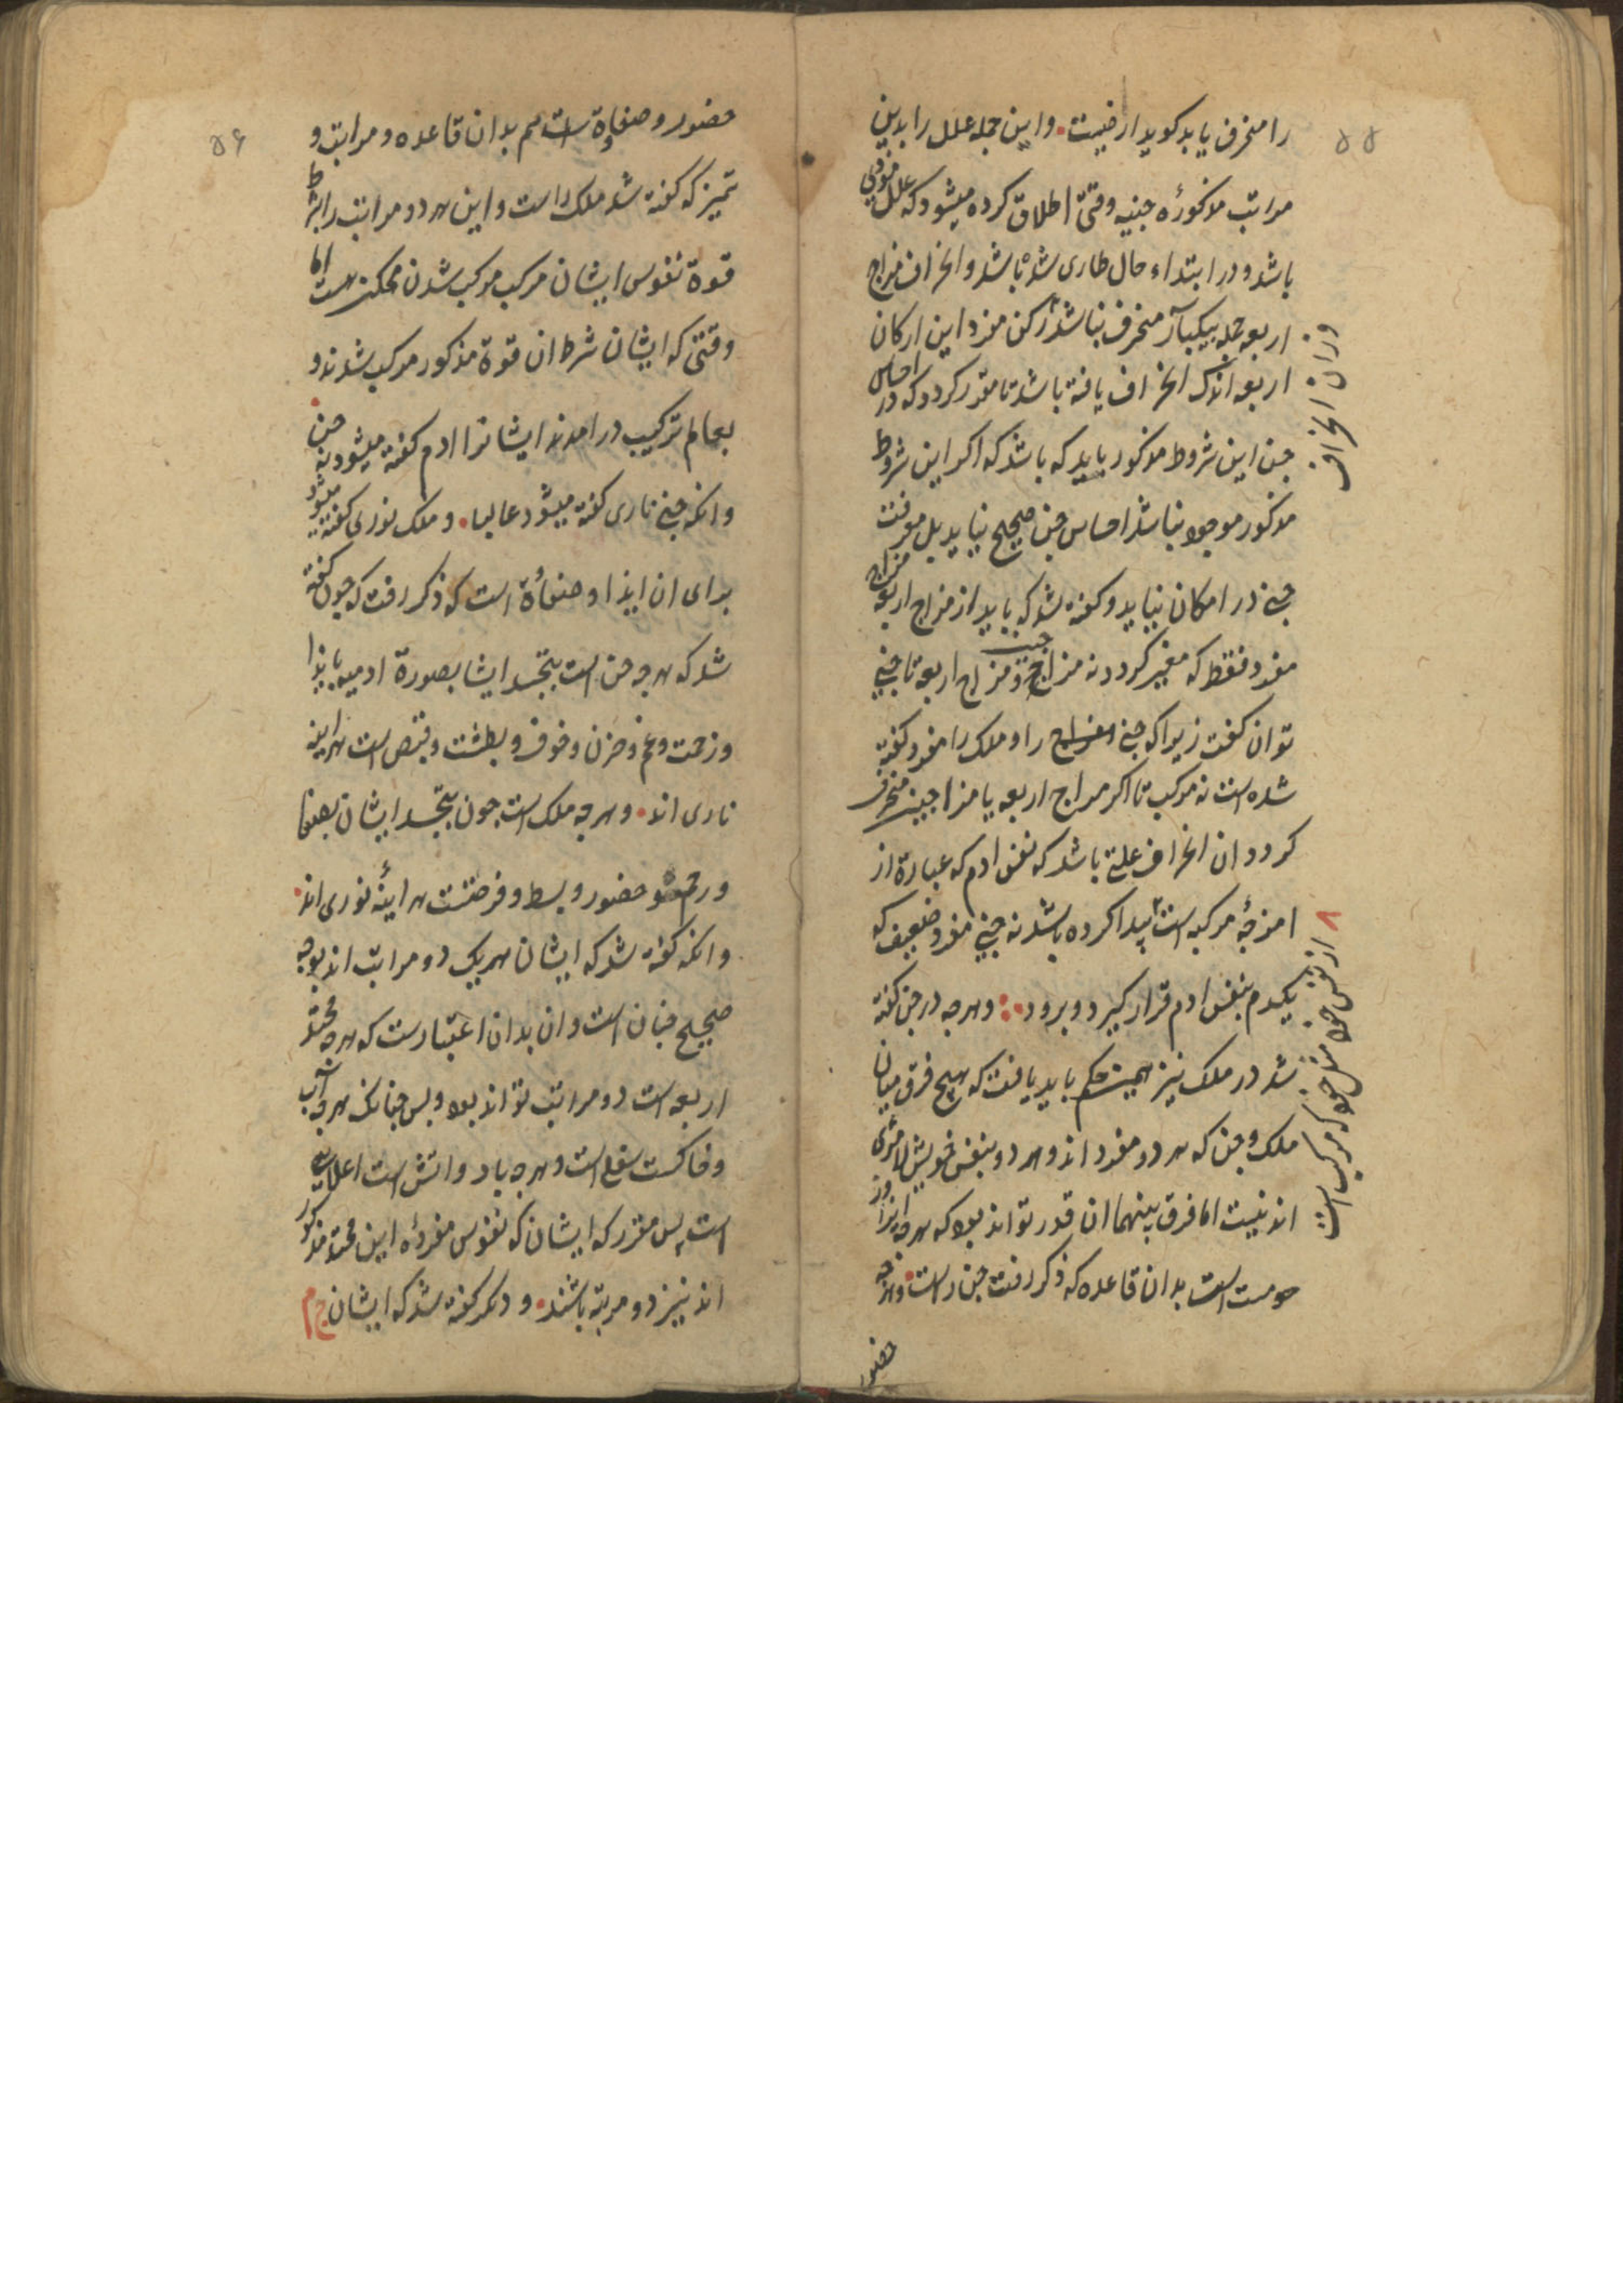 ۵۵
را منحرف یابد کوید ارضیت. واین جمله علل را بدین
مراتب مذکورۀ جنیه وقتی اطلاق کرده میشود که علل فوقی
باشد و در ابتداء حال طاری شده باشد وانحراف مزاج
اربعه جمله بیکبار منحرف نباشد رکن مفرد این ارکان
اربعه اندک انحراف یافته باشد تا مقدر کردد که در احساس
جن این شروط مذکور باید که باشد که اکر این شروط
مذکور موجود نباشد احساس جن صحیح نیاید بل معرفت
جنی در امکان نیاید و کفته شد که باید از مزاج اربعه مزاج
مفرد فقط که مغیر کردد نه مزاج و مزاج اربعه تا جنی
توان کفت زیرا که جنی را و ملک را مفرد کفته
شده است نه مرکب تا اکر مزاج اربعه یا مزاجین منحرف
کردد ان انحراف علتی باشد که نفس ادم که عبارة از
امزجۀ مرکبه است پیدا کرده باشد نه جنی مفرد ضعیف که
یکدم بنفس ادم قرار کیرد و برود و هرجه در جن کفته
شد در ملک نیز همین حکم باید یافت که هیچ فرق میان
ملک و جن که هر دو مفرد اند و هر دو بنفس خویش لامرئی
اند نیست اما فرق بینهما ان قدر تواند بود که هرجه ایذا و
است بدان قاعده که ذکر رفت جن راست. وانجه
حضور
وزان انحراف
از نفس خود مثل خود که مرکب است
۵۶
حضور و صفاوة است هم بدان قاعده و مراتب و
تمیز که کفته شد ملک راست و این هر دو مراتب را بشرط
قوة نفوس ایشان مرکب مرکب شدن ممکن هست اما
وقتی که ایشان شرط ان قوة مذکور مرکب شدند و
بعالم ترکیب درامدند ایشانرا ادم کفته میشود نه جن
وانکه جنی ناری کفته میشود عالبا. و ملک نوری کفته میشود
برای ان ایذا و صفاؤة است که ذکر رفت که جون کفته
شد که هرجه جن است بتجسد ایشا بصورة ادمیه با ایذا
و زحمت و غم و حزن و خوف و بطشت و قبض است هراینه
ناری اند. و هرجه ملک است جون بتجسد ایشان بصفا
و حضور و بسط و فرحتست هراینه نوری اند.
وانکه کفته شد که ایشان هریک دو مراتب اند بوجه
صحیح جنان است و ان بدان اعتبارست که هرجه محتد
اربعه است دو مراتب تواند بود و بس جنانک هرجه آب
و خاکست سفلی است و هرجه باد و اتش است اعلا
است پس مقرر که ایشان که نفوس مفردۀ این محتد مذکور
اند نیز دو مرتبه باشند. و دکر کفته شد که ایشان